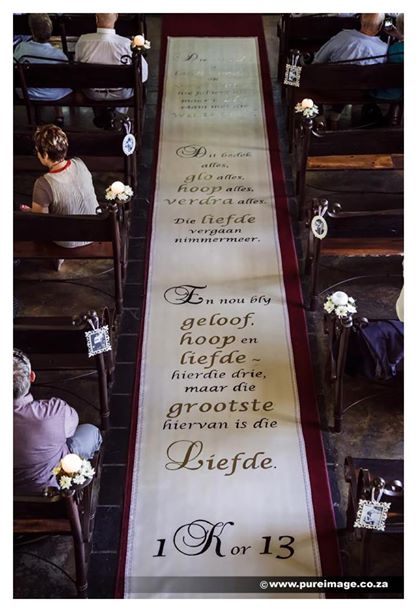 Dit bedek
alles,
glo alles,
hoop alles,
verdra alles.
Die liefde
vergaan
nimmermeer.
En nou bly
geloof,
hoop en
liefde ~
hierdie drie,
maar die
grootste
hiervan is die
Liefde.
1 Kor 13
©www.pureimage.co.za